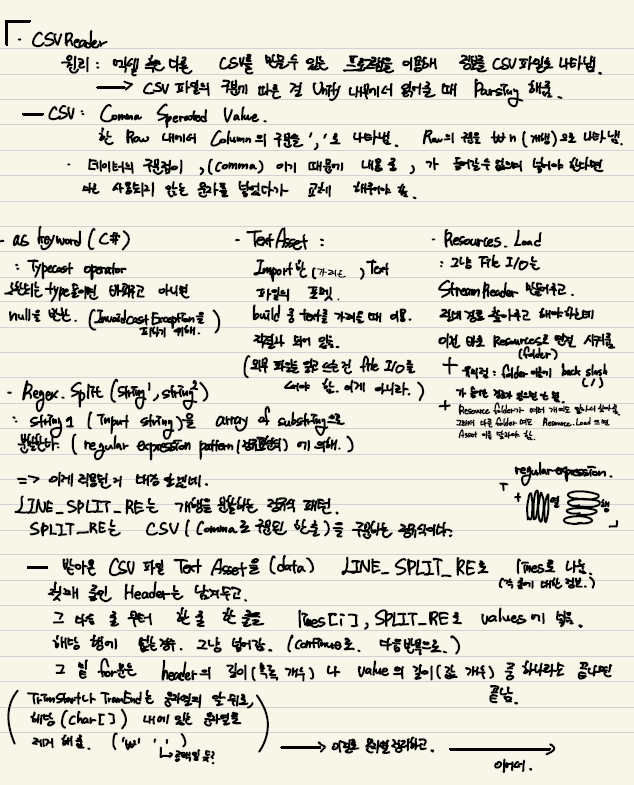 · CSV Reader
원리 : 엑셀 혹은 다른 CSV를 만들수 있는 프로그램을 이용해 정보를 CSV 파일로 나타냄.
→ CSV 파일의 구분에 따른 걸 Unity 내부에서 읽어올 때 Parsing 해줌.
— CSV : Comma Sperated Value.
한 Row 내에서 Column의 구분을 ','로 나타냄. Row의 구분을 \n (개행)으로 나타냄.
· 데이터의 구분점이 , (comma) 이기 때문에 내용 중 , 가 들어갈수 없으며 넣어야 한다면
다른 사용되지 않는 문자를 넣었다가 교체 해줘야 함.
- as keyword (C#)
: Typecast operator
type이면 바꿔주고 아니면
null을 반환. (InvalidCastException을 피하기 위해.)
- Text Asset :
Import한 (가져온) Text
파일의 포맷.
build 중 text를 가져올 때 이용.
직렬화 되어 있음.
(외부 파일을 읽고 쓰는건 file I/O를
써야 함. 이게 아니라.)
· Resources. Load
: 그냥 File I/O는
StreamReader 만들어주고.
절대 경로 찾아주고 해야하는데
이건 바로 Resources로 연결 시켜줌
(folder)
+ 유의점 : folder 이름에 back slash
(/)
가 들어간 경로 있으면 안 됨.
+ Resource folder가 여러 개여도 알아서 찾아줌.
그래서 다른 folder 여도 Resource.Load 쓰면
Asset 이름 달라야 함.
· Regex. Split (string¹, string²)
: string 1 (Input string)을 array of substring으로
분할한다. (regular expression pattern(정규표현식)에 의해.)
=> 이게 이용된거 대충 알겠네.
LINE_SPLIT_RE는 개행을 분할하는 정규식 패턴.
SPLIT_RE는 CSV (Comma로 구분된 한줄)를 구분하는 정규식이다.
regular expression.
+ 열 행
— 받아온 CSV 파일 Text Asset을 (data) LINE_SPLIT_RE로 lines로 나눔.
(각 줄에 대한 정보.)
첫째 줄인 Header는 남겨두고.
그 다음 줄 부터 한 줄 한 줄을 lines[i], SPLIT_RE로 values에 넣음.
해당 행에 없는경우. 그냥 넘어감. (continue로. 다음반복으로.)
그 밑 for문은 header의 길이(목록 개수) 나 value의 길이(값 개수) 중 하나라도 끝나면
끝남.
(TrimStart나 TrimEnd는 문자열의 앞 뒤로,
해당 (char[]) 내에 있는 문자열을
제거 해줌. ('\' ' ')
공백일 듯?
→ 이걸로 문자열 정리하고. →
이어서.